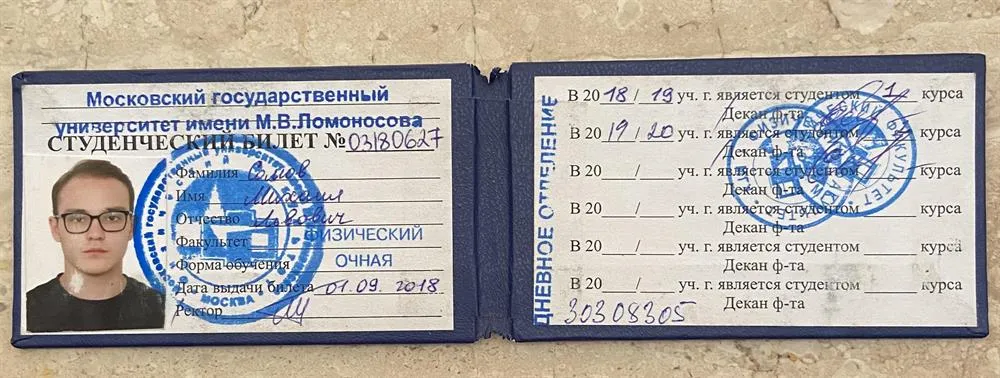 Московский государственный
университет имени М.В.Ломоносова
СТУДЕНЧЕСКИЙ БИЛЕТ № 03180627
Фамилия
Имя Михаил
Отчество Львович
Факультет ФИЗИЧЕСКИЙ
Форма обучения ОЧНАЯ
Дата выдачи билета 01.09.2018
Ректор
МОСКВА
ДНЕВНОЕ ОТДЕЛЕНИЕ
В 2018/19 уч. г. является студентом 1 курса
Декан ф-та
В 2019/20 уч. г. является студентом курса
Декан ф-та
В 20___/___ уч. г. является студентом курса
Декан ф-та
В 20___/___ уч. г. является студентом курса
Декан ф-та
В 20___/___ уч. г. является студентом курса
Декан ф-та
В 20___/___ уч. г. является студентом курса
Декан ф-та
30308305